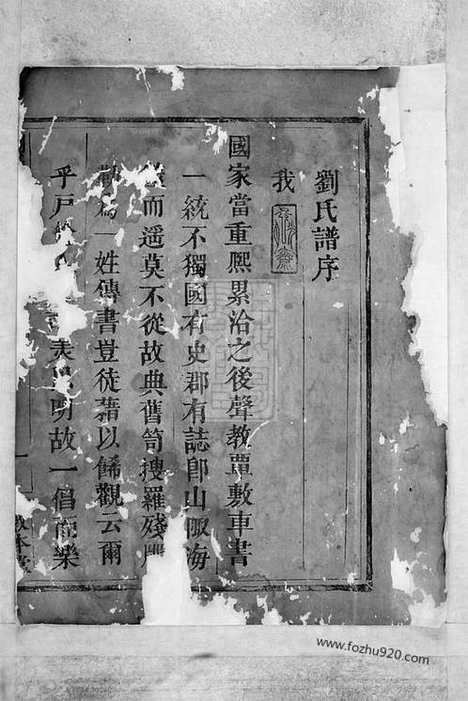 劉氏譜序
我
國家當重熙累洽之後聲教覃敷車書
一統不獨國有史郡有誌卽山陬海
而遥莫不從故典舊笥搜羅殘
一姓傳書豈徒藉以餙觀云爾
乎戸 明故一倡而樂
敦本堂
www.fozhu920.com